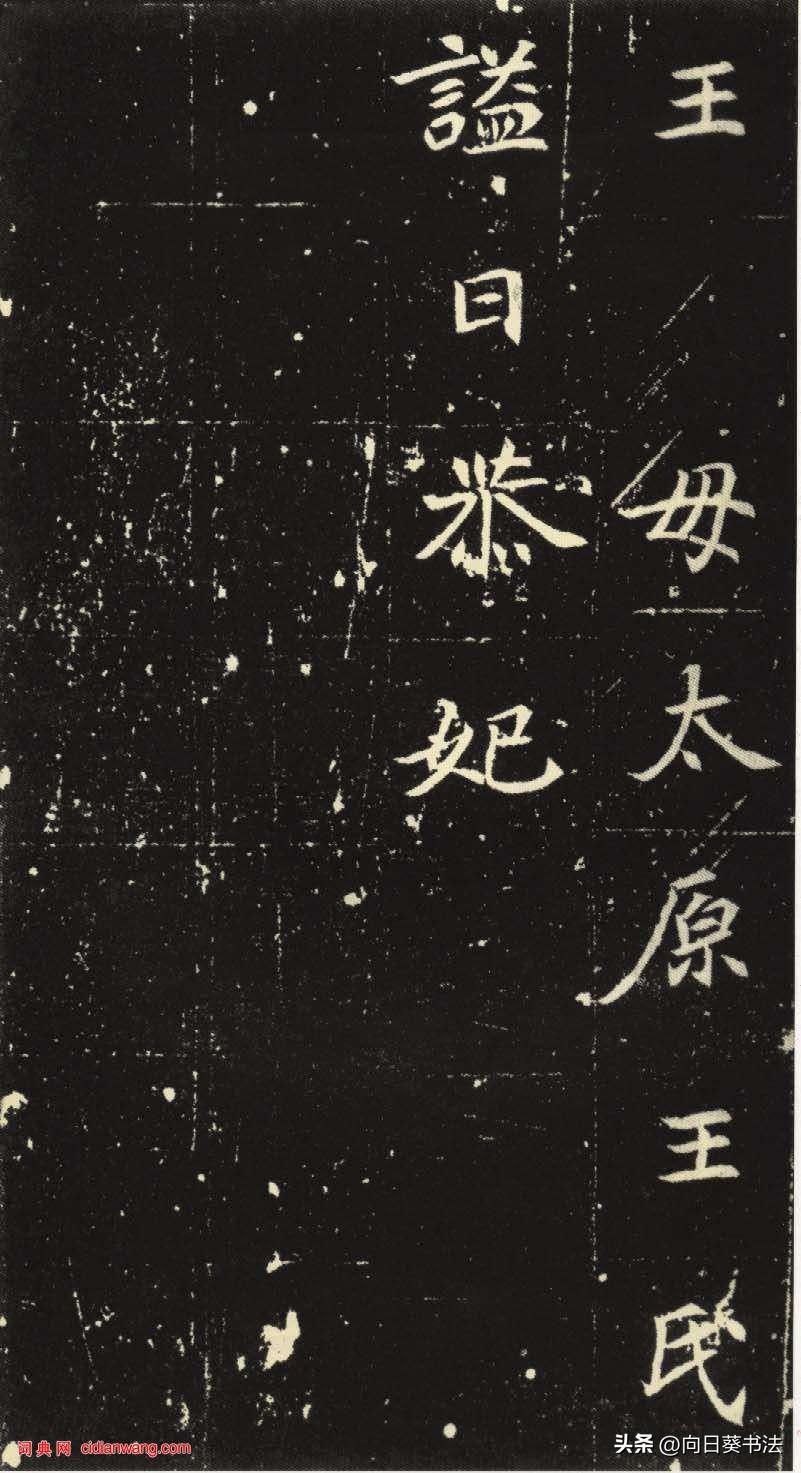 王 母太原王氏
謚曰恭妃
词典网 cidianwang.com
头条 @向日葵书法